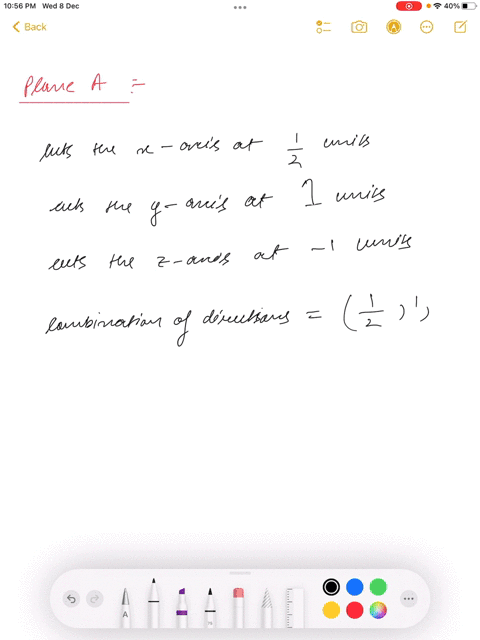 10:56 PM Wed 8 Dec
40%
Back
Plane A :-
cuts the x-axis at 1/2 units
cuts the y-axis at 1 units
cuts the z-axis at -1 units
combination of directions = (1/2, 1,